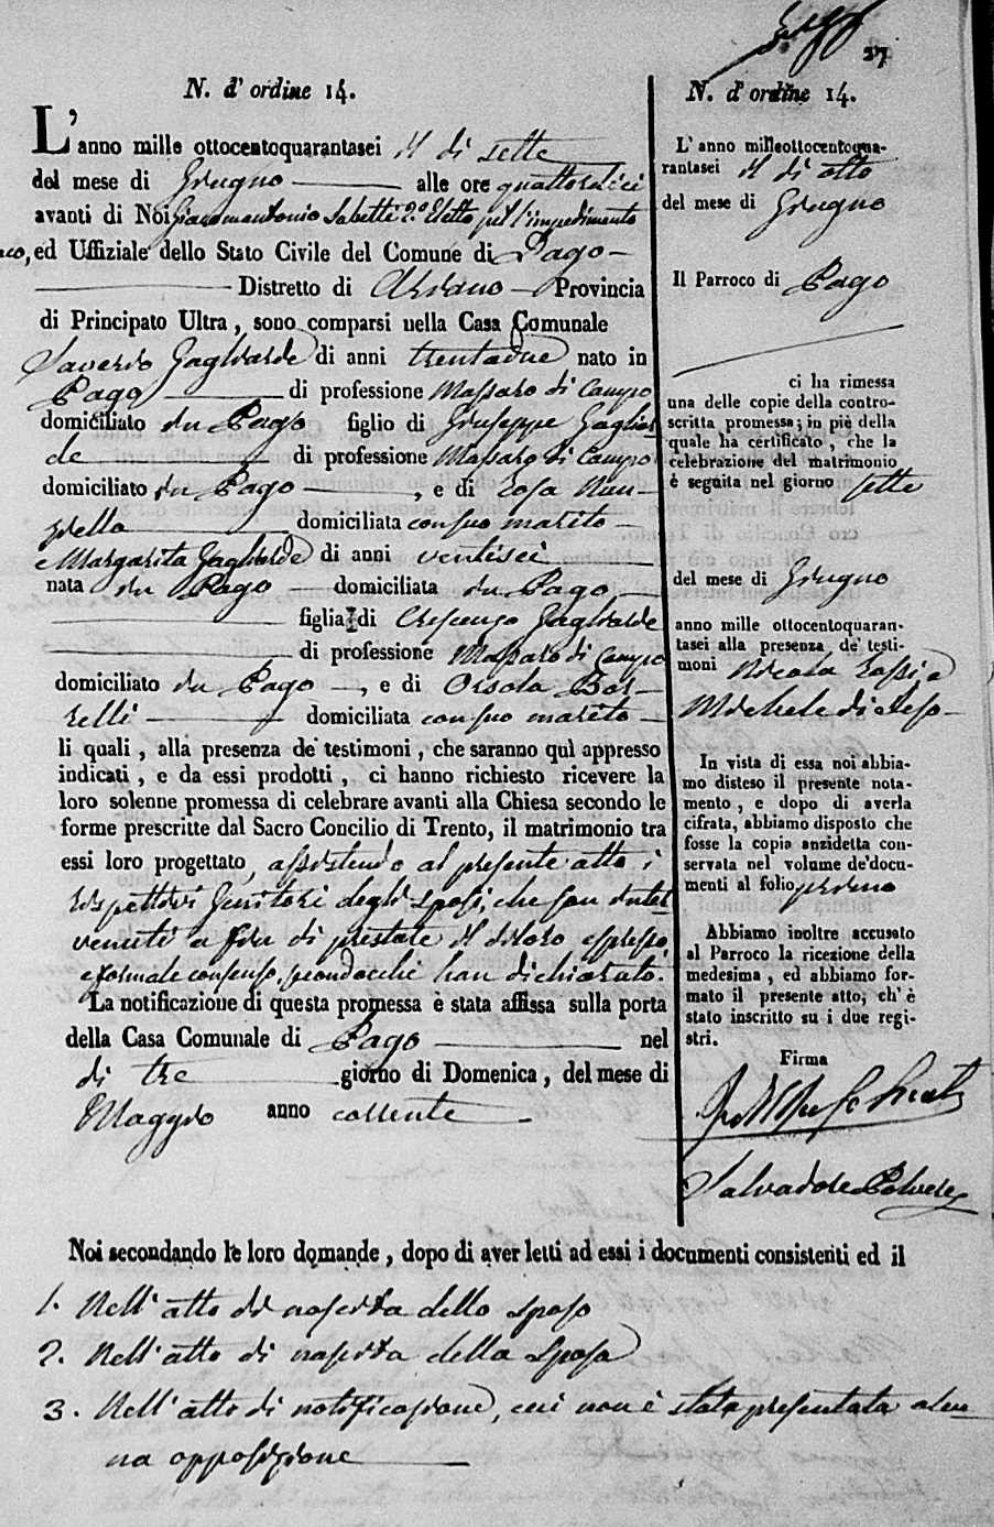 27
N. d'ordine 14.
L'anno mille ottocentoquarantasei il dì sette
del mese di Giugno alle ore quattordici
avanti di Noi Giacomantonio Sabetti 2.º Eletto pel l'impedimento
ed Uffiziale dello Stato Civile del Comune di Pago
Distretto di Ariano Provincia
di Principato Ultra, sono comparsi nella Casa Comunale
Saverio Gagliarde di anni trentadue nato in
Pago di professione Massaro di Campo
domiciliato in Pago figlio di Giuseppe Gagliar
de di professione Massaro di Campo
domiciliato in Pago, e di Rosa Nun-
ziella domiciliata con suo marito
e Margarita Gagliarde di anni ventisei
nata in Pago domiciliata in Pago
figlia di Crescenzo Gagliarde
di professione Massaro di Campo
domiciliato in Pago, e di Orsola Bor-
relli domiciliata con suo marito
li quali, alla presenza de' testimoni, che saranno quì appresso
indicati, e da essi prodotti, ci hanno richiesto ricevere la
loro solenne promessa di celebrare avanti alla Chiesa secondo le
forme prescritte dal Sacro Concilio di Trento, il matrimonio tra
essi loro progettato, assistendo al presente atto i
rispettivi Genitori degli sposi, che son inter
venuti a fin di prestare il di loro espresso,
e formale consenso, secondocchè han dichiarato.
La notificazione di questa promessa è stata affissa sulla porta
della Casa Comunale di Pago nel
dì tre giorno di Domenica, del mese di
Maggio anno corrente
N. d'ordine 14.
L'anno milleottocentoqua-
rantasei il dì otto
del mese di Giugno
Il Parroco di Pago
ci ha rimessa
una delle copie della contro-
scritta promessa; in piè della
quale ha certificato, che la
celebrazione del matrimonio
è seguita nel giorno sette
del mese di Giugno
anno mille ottocentoquaran-
tasei alla presenza de' testi-
moni Nicola Rossi, e
Michele di
In vista di essa noi abbia-
mo disteso il presente nota-
mento, e dopo di averla
cifrata, abbiamo disposto che
fosse la copia anzidetta con-
servata nel volume de' docu-
menti al folio
Abbiamo inoltre accusato
al Parroco la ricezione della
medesima, ed abbiamo for-
mato il presente atto, ch'è
stato inscritto su i due regi-
stri.
Firma
Salvadore Polvere
Noi secondando le loro domande, dopo di aver letti ad essi i documenti consistenti ed il
1. Nell'atto di nascita dello sposo
2. Nell'atto di nascita della sposa
3. Nell'atto di notificazione, cui non è stata presentata alcu
na opposizione